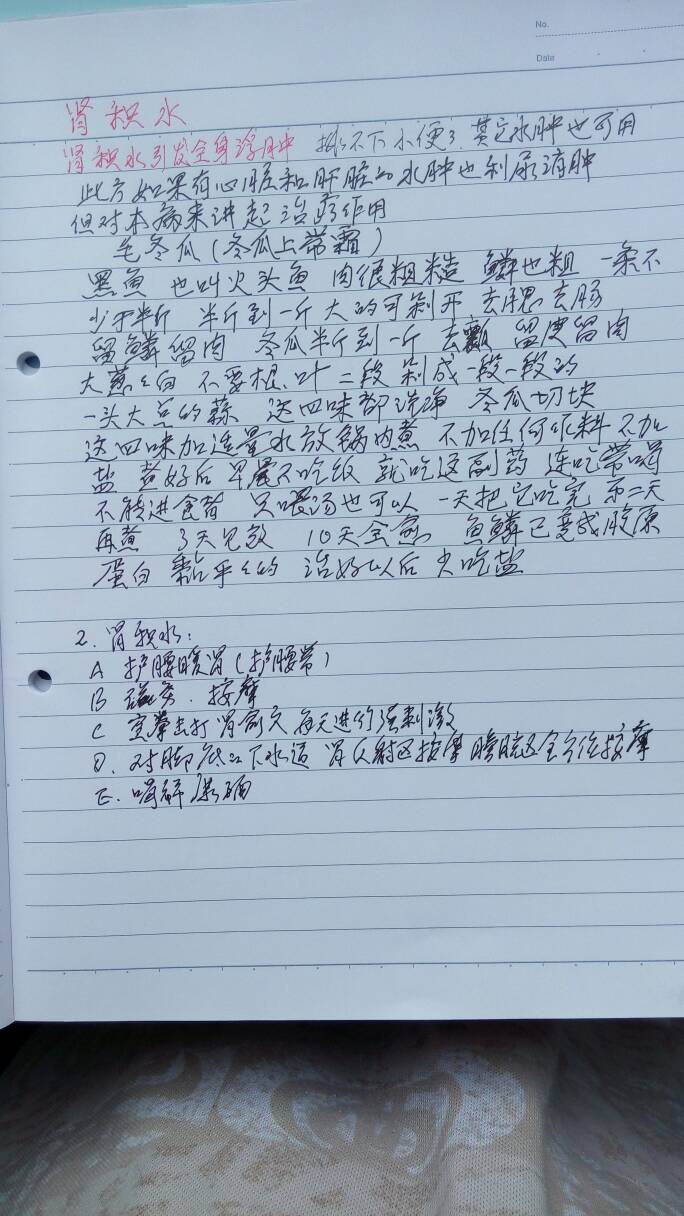 No.
Date
肾积水
肾积水引发全身浮肿 排不下小便了.其它水肿也可用
此方如果有心脏和肝脏的水肿也利尿消肿
但对本病来讲起治疗作用
毛冬瓜(冬瓜上带霜)
黑鱼 也叫火头鱼 肉很粗糙 鳞也粗 一条不
少于半斤 半斤到一斤 大的可剥开 去腮去肠
留鳞留肉 冬瓜半斤到一斤 去瓤 留皮留肉
大葱葱白 不要根.叶 二段 剁成一段一段的
一头大的蒜 这四味都洗净 冬瓜切块
这四味加适量水放锅内煮 不加任何作料 不加
盐 煮好后 早晨不吃饭 就吃这副药 连吃带喝
不能进食者 只喂汤也可以 一天把它吃完 第二天
再煮 3天见效 10天全愈 鱼鳞已变成胶原
蛋白 黏乎乎的 治好以后 少吃盐
2. 肾积水:
A 护腰暖肾(护腰带)
B 磁灸.按摩
C 空拳击打肾俞穴 每天进行强刺激
D. 对脚底的下水道 肾反射区按摩 膀胱区全方位按摩
E. 喝